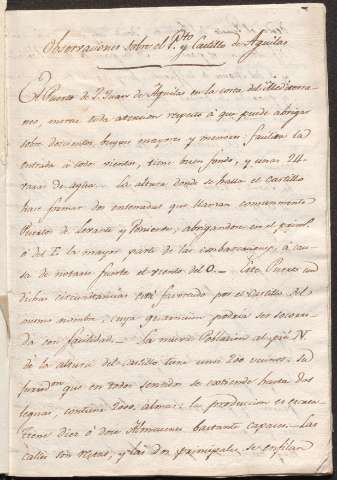 Observaciones sobre el P.to y Castillo de Aguilas
El Puerto de S. Juan de Aguilas en la costa del Mediterra-
neo, merece toda atencion respecto à que puede abrigar
sobre doscientos buques mayores y menores: facilita la
entrada à todos vientos, tiene buen fondo, y unas 24
varas de agua. La altura donde se halla el Castillo
hace formar dos ensenadas que llaman comunmente
Puertos de Levante y Poniente; abrigandose en el prim.o
ó del E. la mayor parte de las embarcaciones, à cau-
sa de notarse fuerte el viento del O. Este Puerto en
dichas circunstancias está favorecido por el Castillo del
mismo nombre, cuya guarnicion podria ser socorri-
da con facilidad. La nueva Poblacion al pié N.
de la altura del Castillo tiene unos 200 vecinos, su
que en todos sentidos se extiende hasta dos
leguas, contiene 2000 almas: la produccion es
tiene diez ó doce Almacenes bastante capaces. Las
calles son rectas, y las dos principales se enfilan